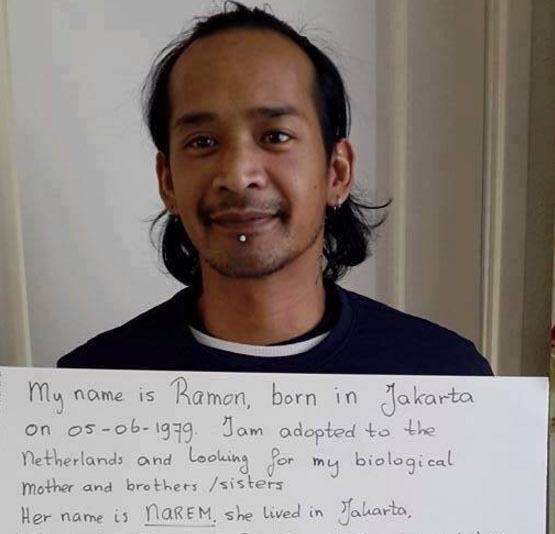 My name is Ramon, born in Jakarta
on 05-06-1979. I am adopted to the
Netherlands and Looking for my biological
mother and brothers / sisters
Her name is NAREM, she lived in Jakarta,